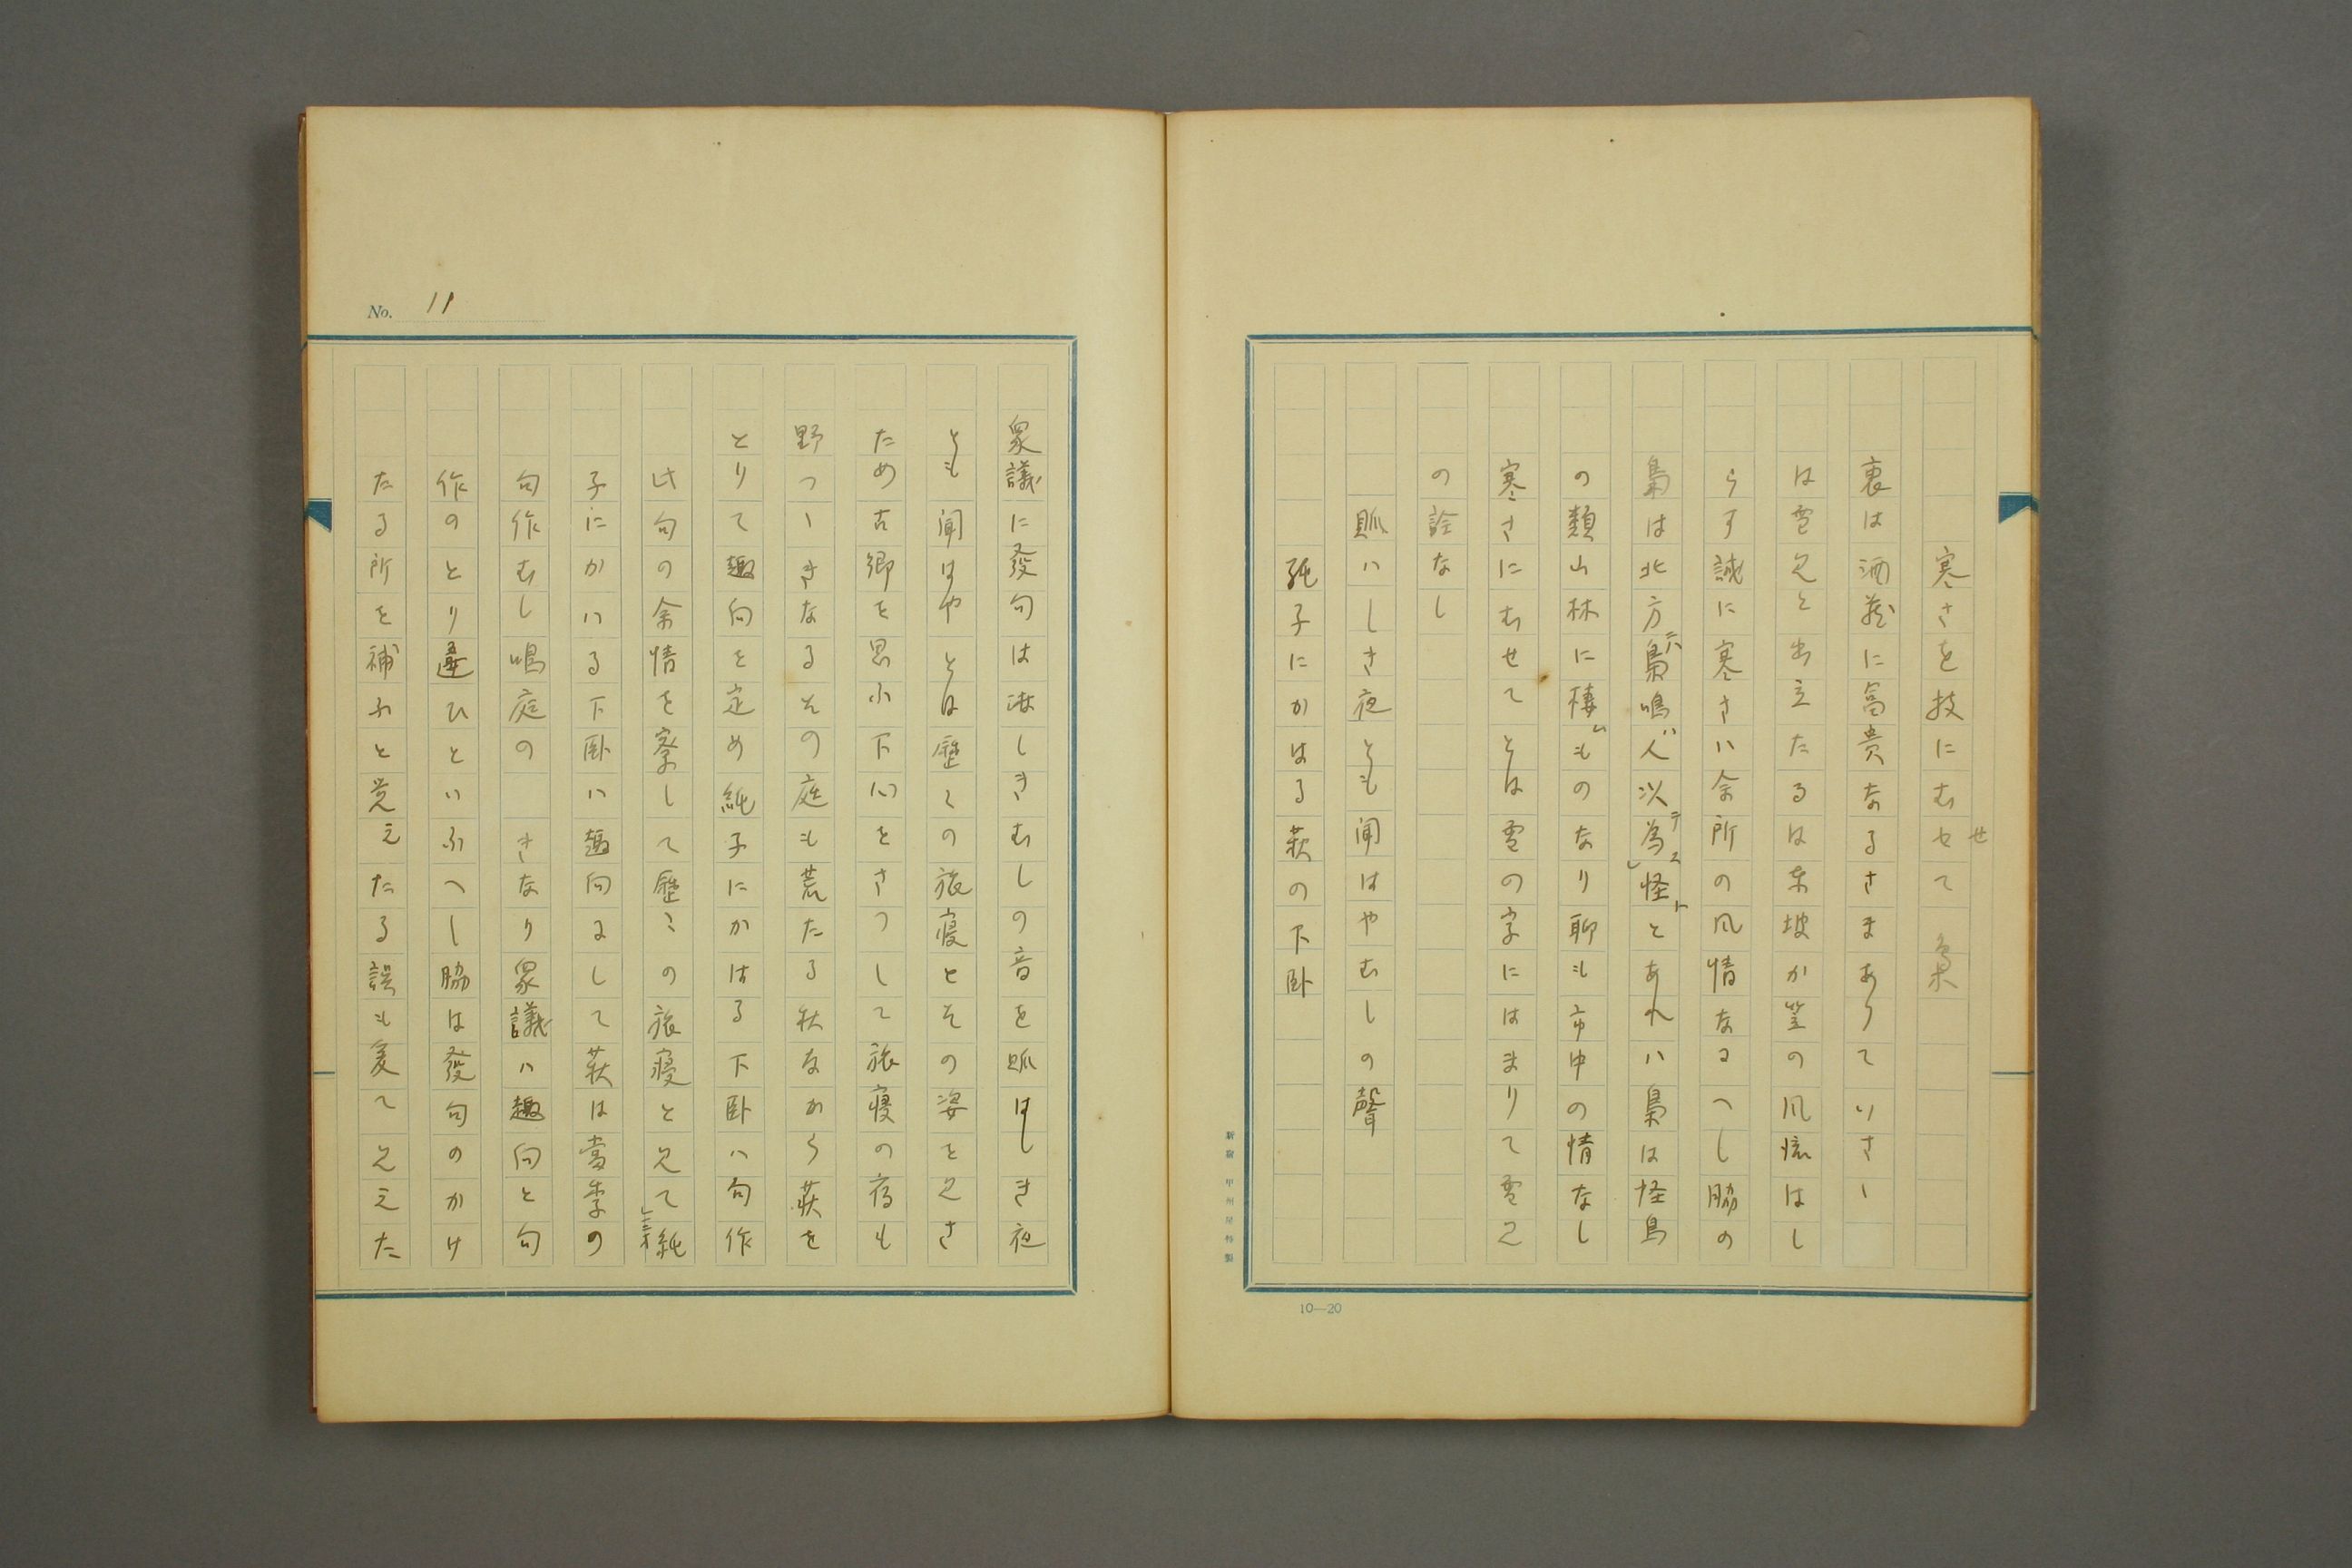 寒さを投にむせて 梟
衷は酒蔵に富貴なるさまありていさゝ
は雪見と出立たるは東坡か笠の風流はし
らす誠に寒さハ余所の風情なるへし脇の
梟は北方ニハ梟鳴ハ人以テ為スレ怪トとあれハ梟は怪鳥
の類山林に棲ムものなり聊も市中の情なし
寒さにむせてとは雪の字にはまりて雪見
の詮なし
賑ハしき夜とも聞はやむしの聲
純子にかはる萩の下臥
10—20
No. 11
衆議に發句は淋しきむしの音を賑はしき夜
とも聞はやとは歴々の旅寝とその姿を見さ
ため古郷を思ふ下心をさつして旅寝の宿も
野つゝきなるその庭も荒たる秋なから萩を
とりて趣向を定め純子にかはる下臥ハ句作
此句の余情を察して歴々の旅寝と見て純
子にかハる下臥ハ趣向にして萩は當季の
句作むし鳴庭の きなり衆議ハ趣向と句
作のとり違ひといふへし脇は發句のかけ
たる所を補ふと覚えたる誤も爰て見えた